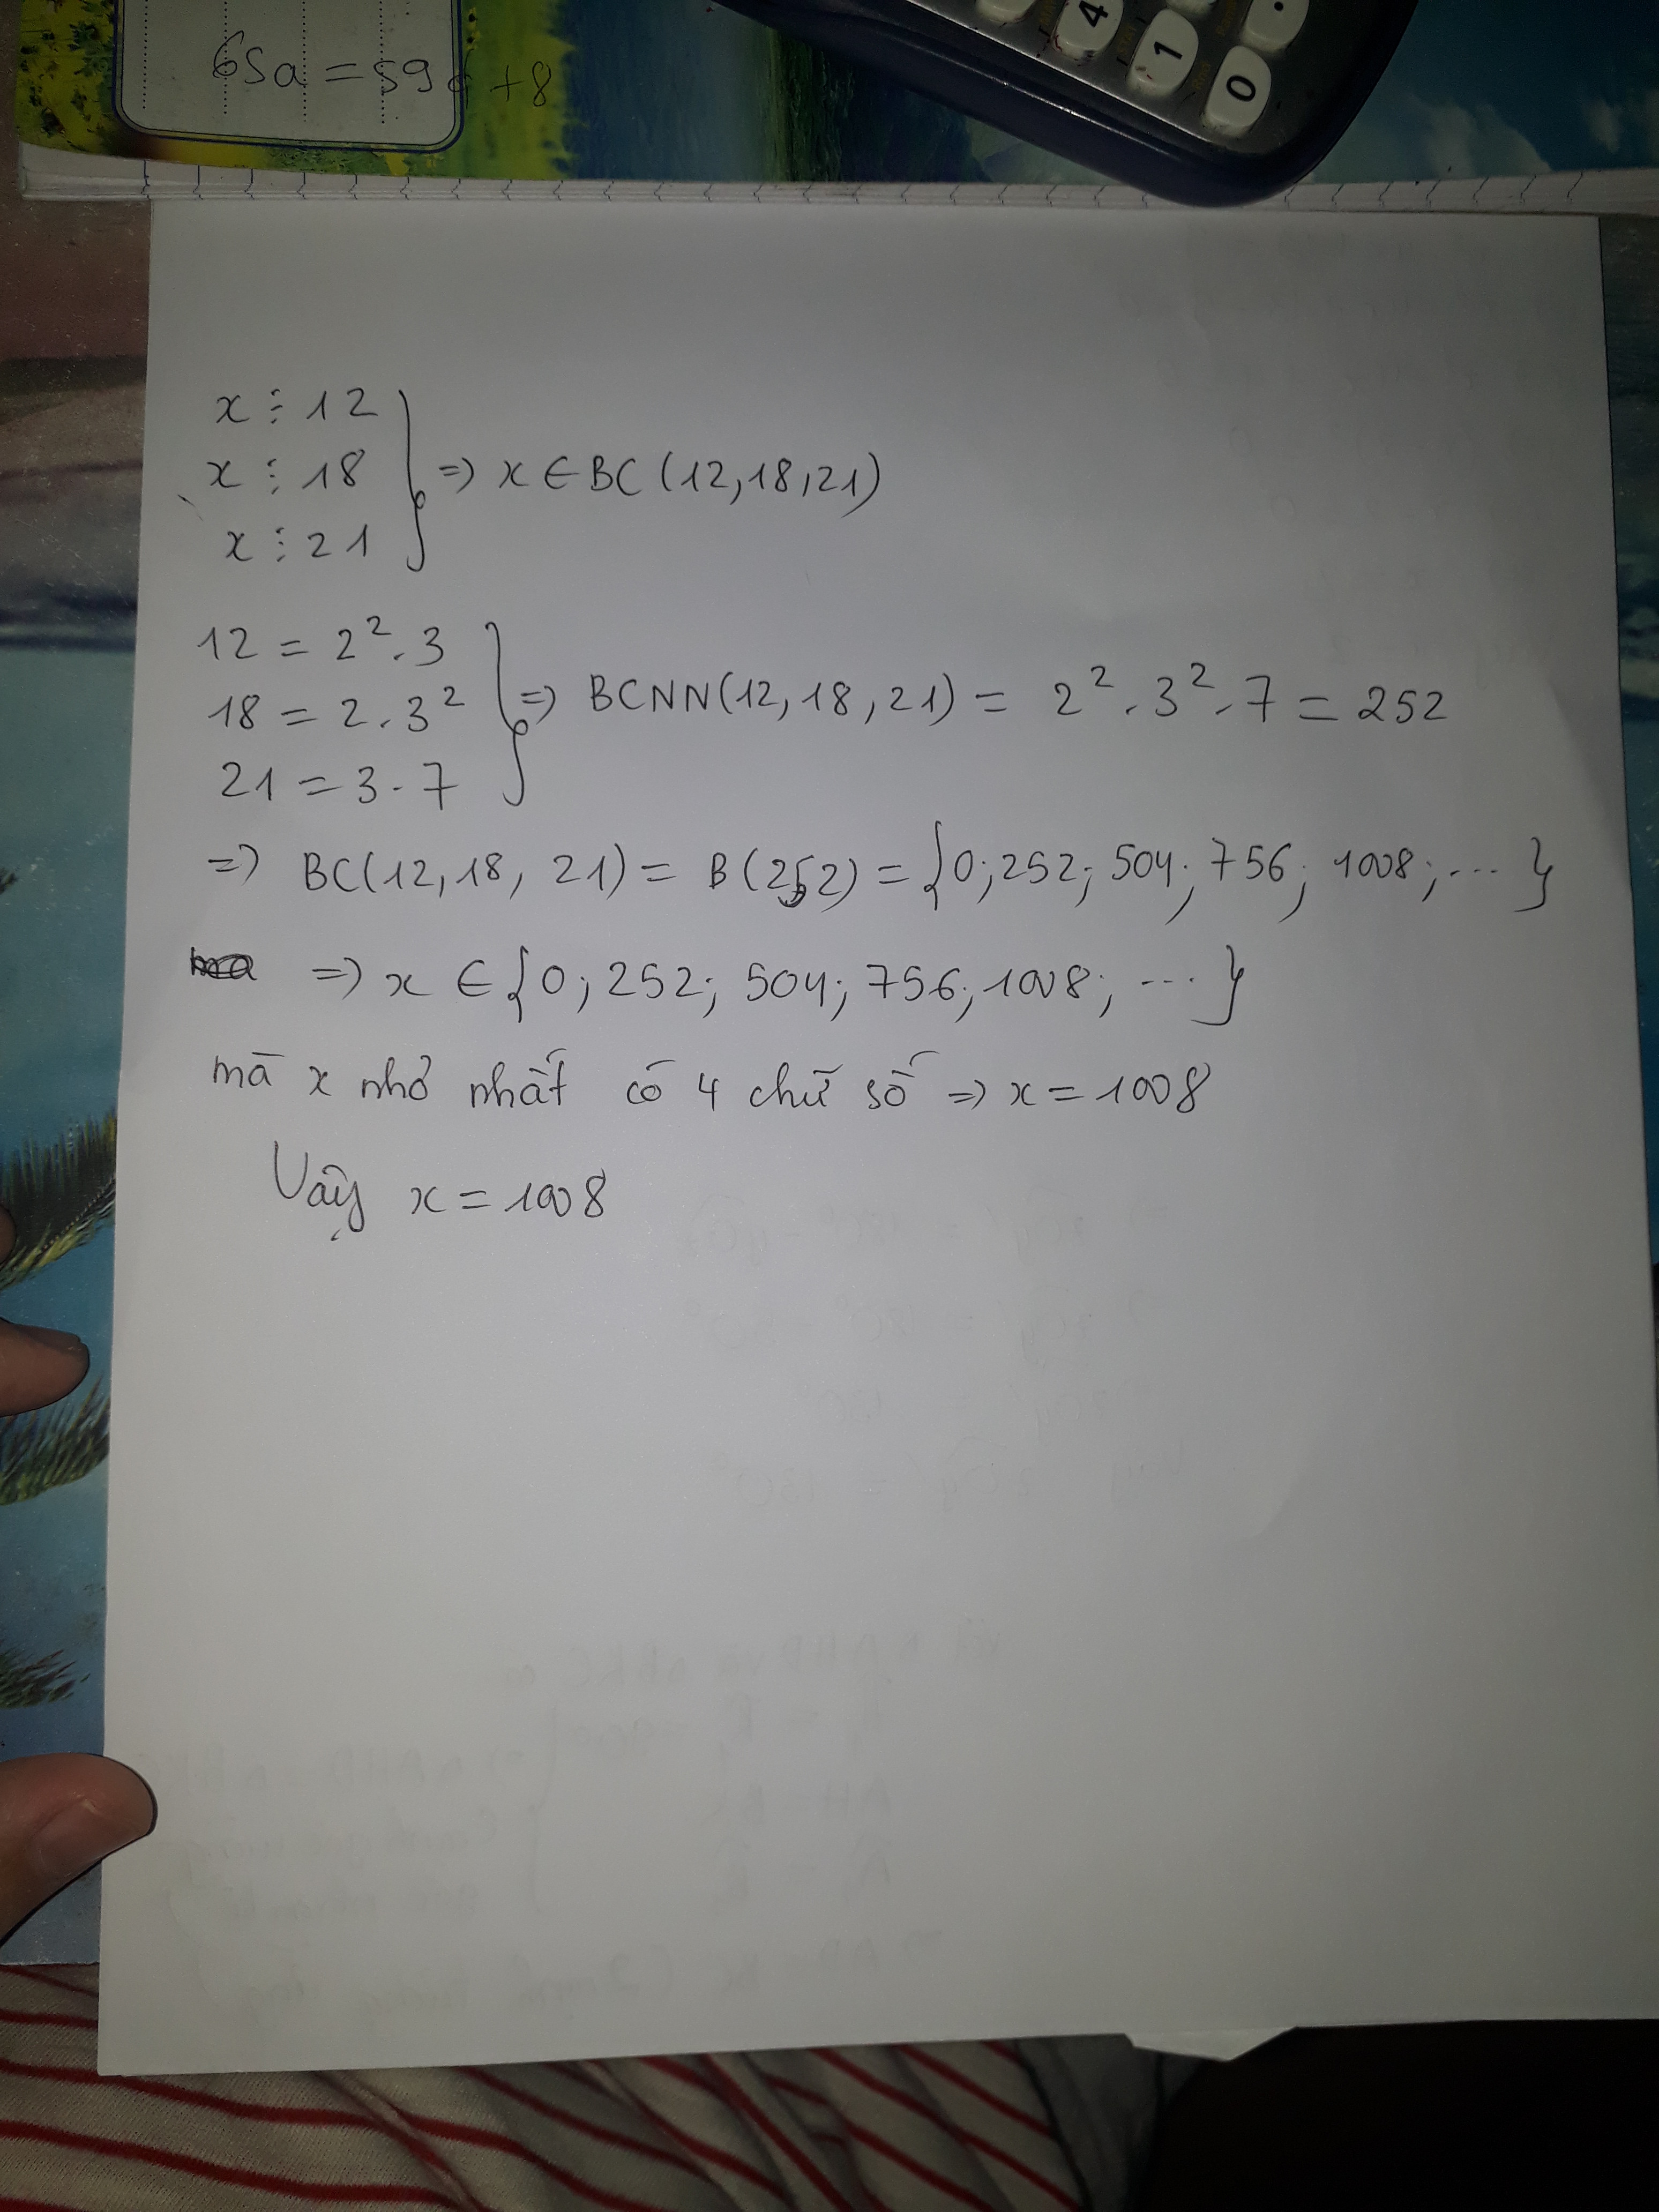 6Sa = 596 + 8
4
1
0
x ⋮ 12
x ⋮ 18
x ⋮ 21
=> x ∈ BC (12,18,21)
12 = 2². 3
18 = 2. 3²
21 = 3. 7
=> BCNN(12, 18, 21) = 2². 3². 7 = 252
=> BC(12, 18, 21) = B(252) = {0; 252; 504; 756; 1008; ...}
=> x ∈ {0; 252; 504; 756; 1008; ...}
mà x nhỏ nhất có 4 chữ số => x = 1008
Vậy x = 1008